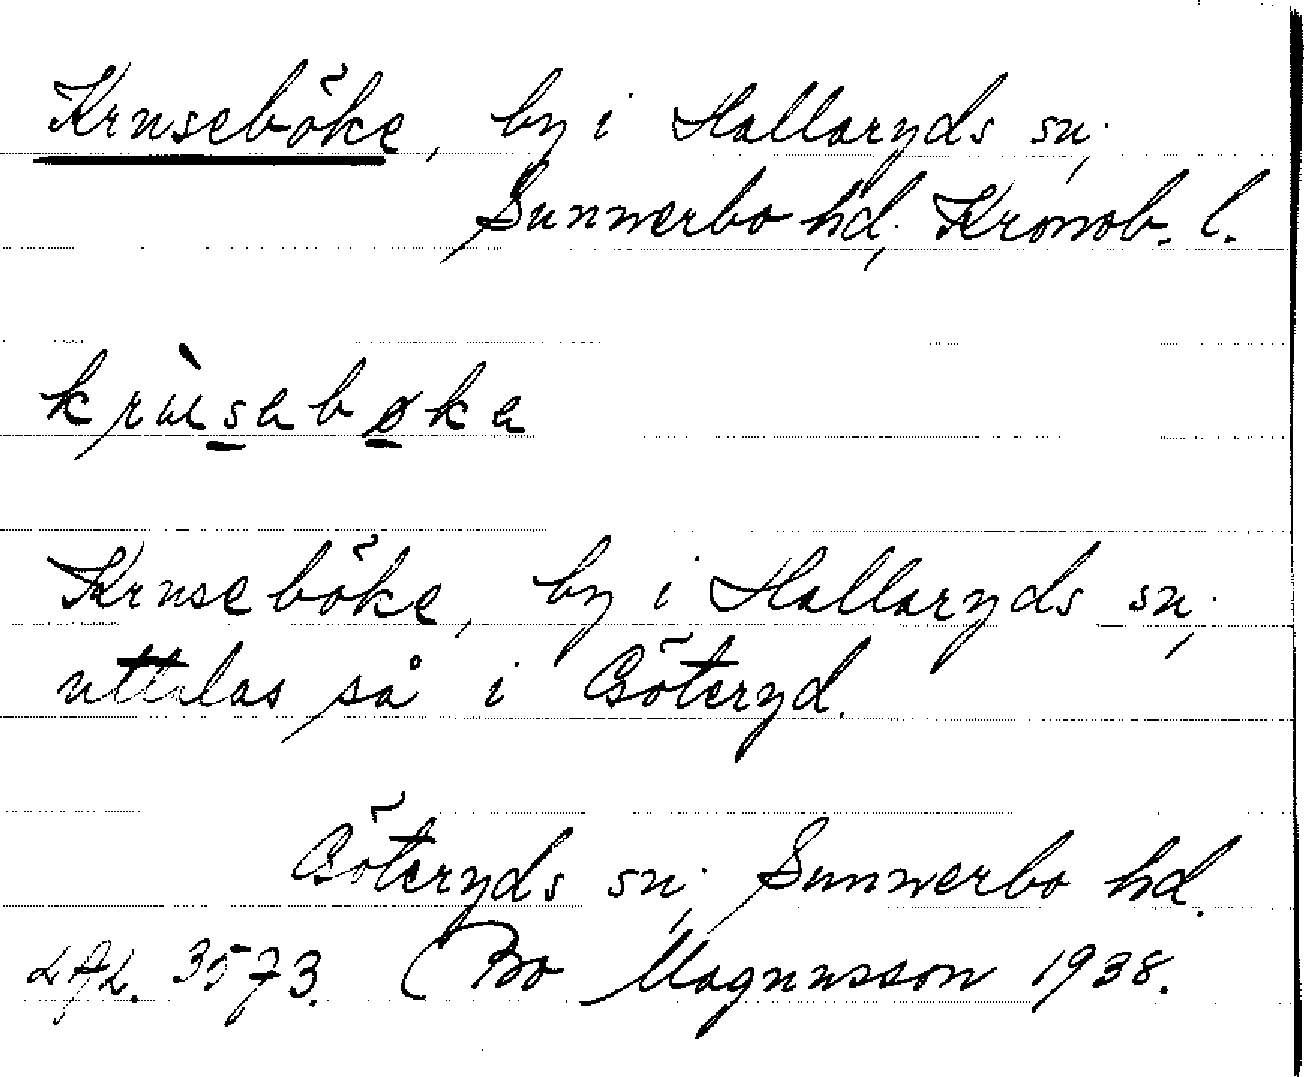 Kruseböke, by i Hallaryds sn,
Sunnerbo hd, Kronob. l.
krùsabøka
Kruseböke, by i Hallaryds sn,
uttalas så i Göteryd.
Göteryds sn, Sunnerbo hd.
3573. (Bo Magnusson 1938.